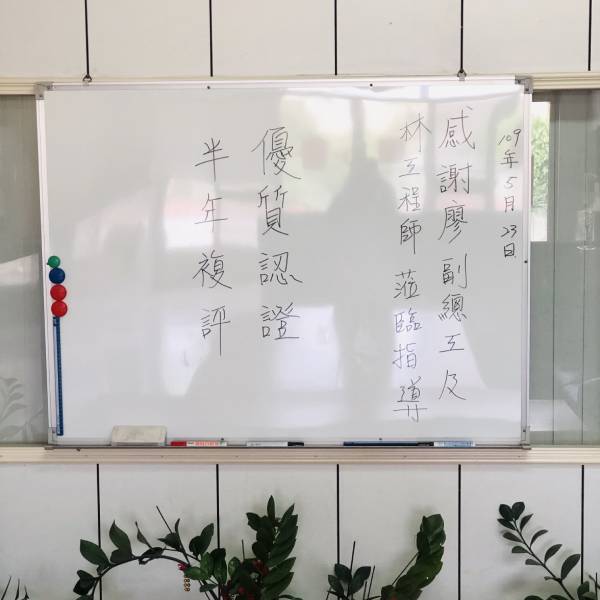 109年5月23日
感謝廖副總工及
林工程師蒞臨指導
優質認證
半年複評